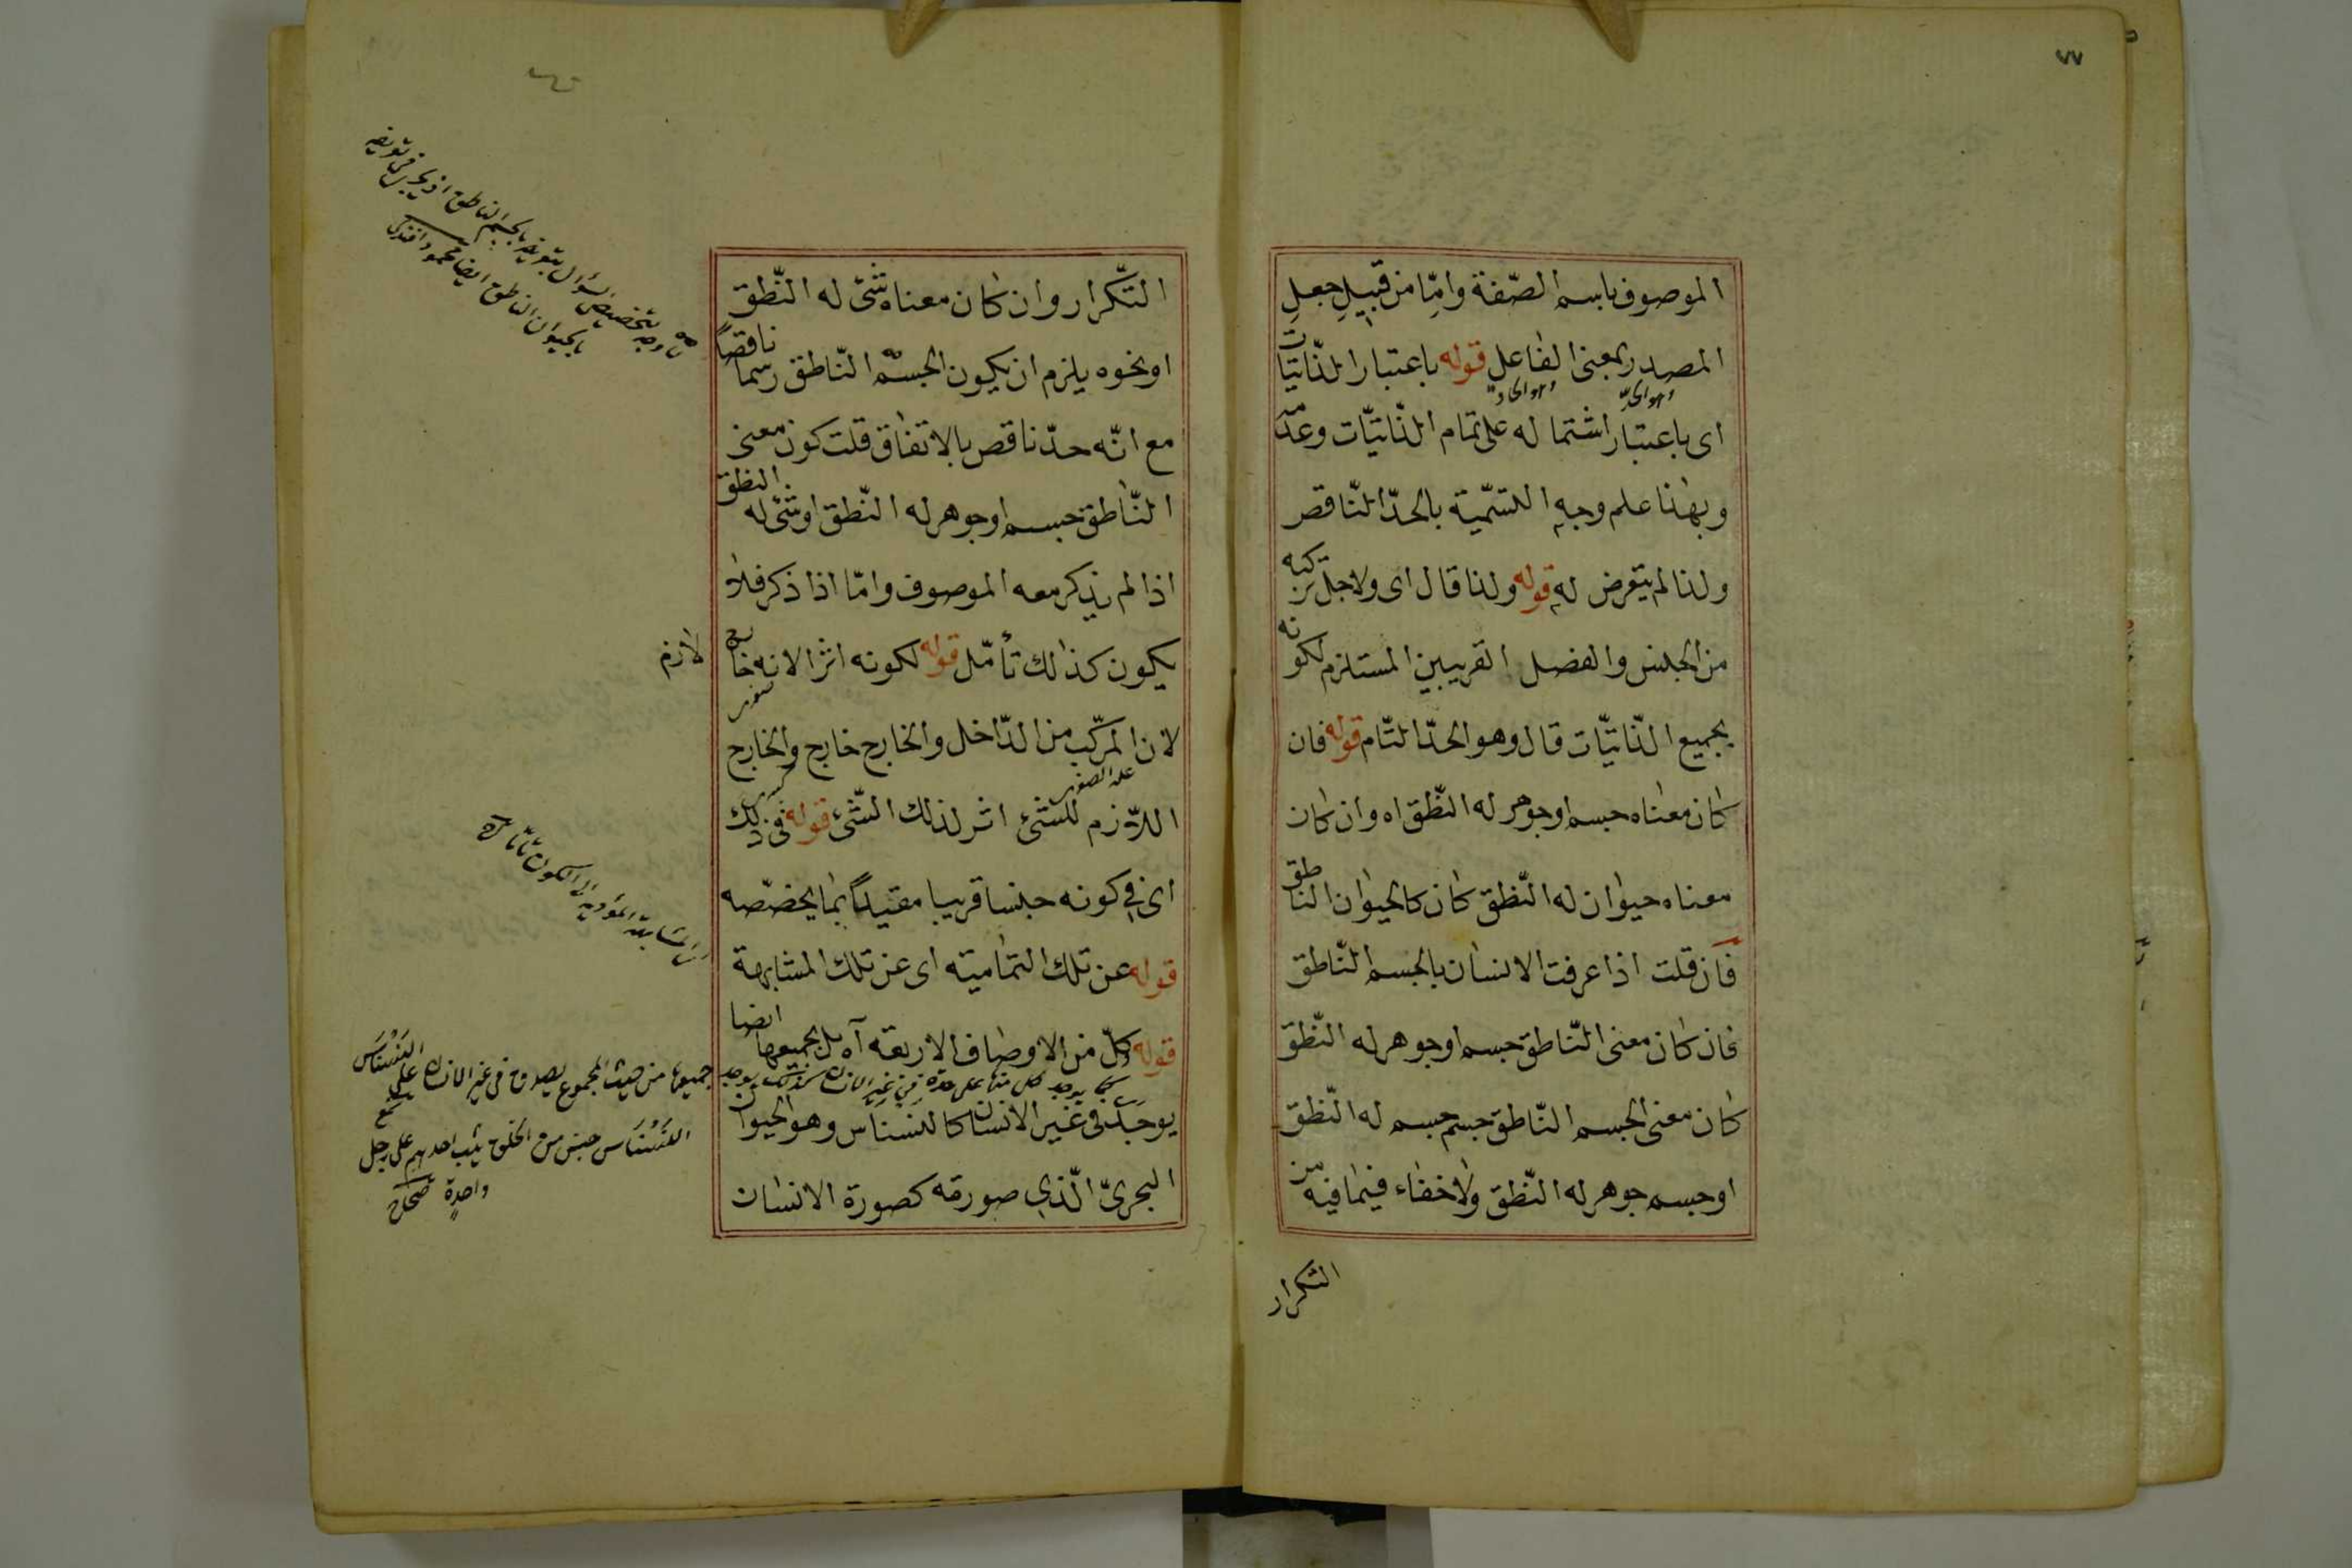 ٧٧
الموصوف باسم الصّفة وامّا من قبيل جعل
المصدر بمعنى الفاعل قوله باعتبار الذّاتيّات
اى باعتبار اشتماله على تمام الذّاتيّات وعدمه
وبهذا علم وجه التسميّة بالحدّ النّاقص
ولذا لم يتعرض له قوله ولذا قال اى ولاجل تركبه
من الجنس والفصل القريبين المستلزم لكونه
بجميع الذّاتيّات قال وهو الحدّ التّام قوله فان
كان معناه جسم او جوهر له النّطق اه وان كان
معناه حيوان له النّطق كان كالحيوان الناطق
فان قلت اذا عرفت الانسان بالجسم النّاطق
فان كان معنى النّاطق جسم او جوهر له النّطق
كان معنى الجسم النّاطق جسم جسم له النّطق
او جسم جوهر له النّطق ولا خفاء فيما فيه من
التكرار
التّكرار وان كان معناه شئ له النّطق
او نحوه يلزم ان يكون الجسم النّاطق رسما ناقصاً
مع انّه حدّ ناقص بالاتفاق قلت كون معنى
النّاطق جسم او جوهر له النّطق او شئ له النطق
اذا لم يذكر معه الموصوف وامّا اذا ذكر فلا
يكون كذلك تأمّل قوله لكونه اثرا لانه خارج
لازم
لان المركّب من الدّاخل والخارج خارج والخارج
اللّازم للشئ اثر لذلك الشّئ قوله فى ذلك
اى فى كونه جنسا قريبا مقيداً بما يخصّصه
قوله عن تلك التماميته اى عن تلك المشابهة
قوله وكلّ من الاوصاف الاربعة آه بل جميعها ايضا
يوجد فى غير الانسان كالنسناس وهو الحيوان
البحرىّ الّذى صورته كصورة الانسان
جميعها من حيث المجموع يصدق فى غير الانسان
النسناس جنس من الخلق يثب احدهم على رجل
واحدة صحاح